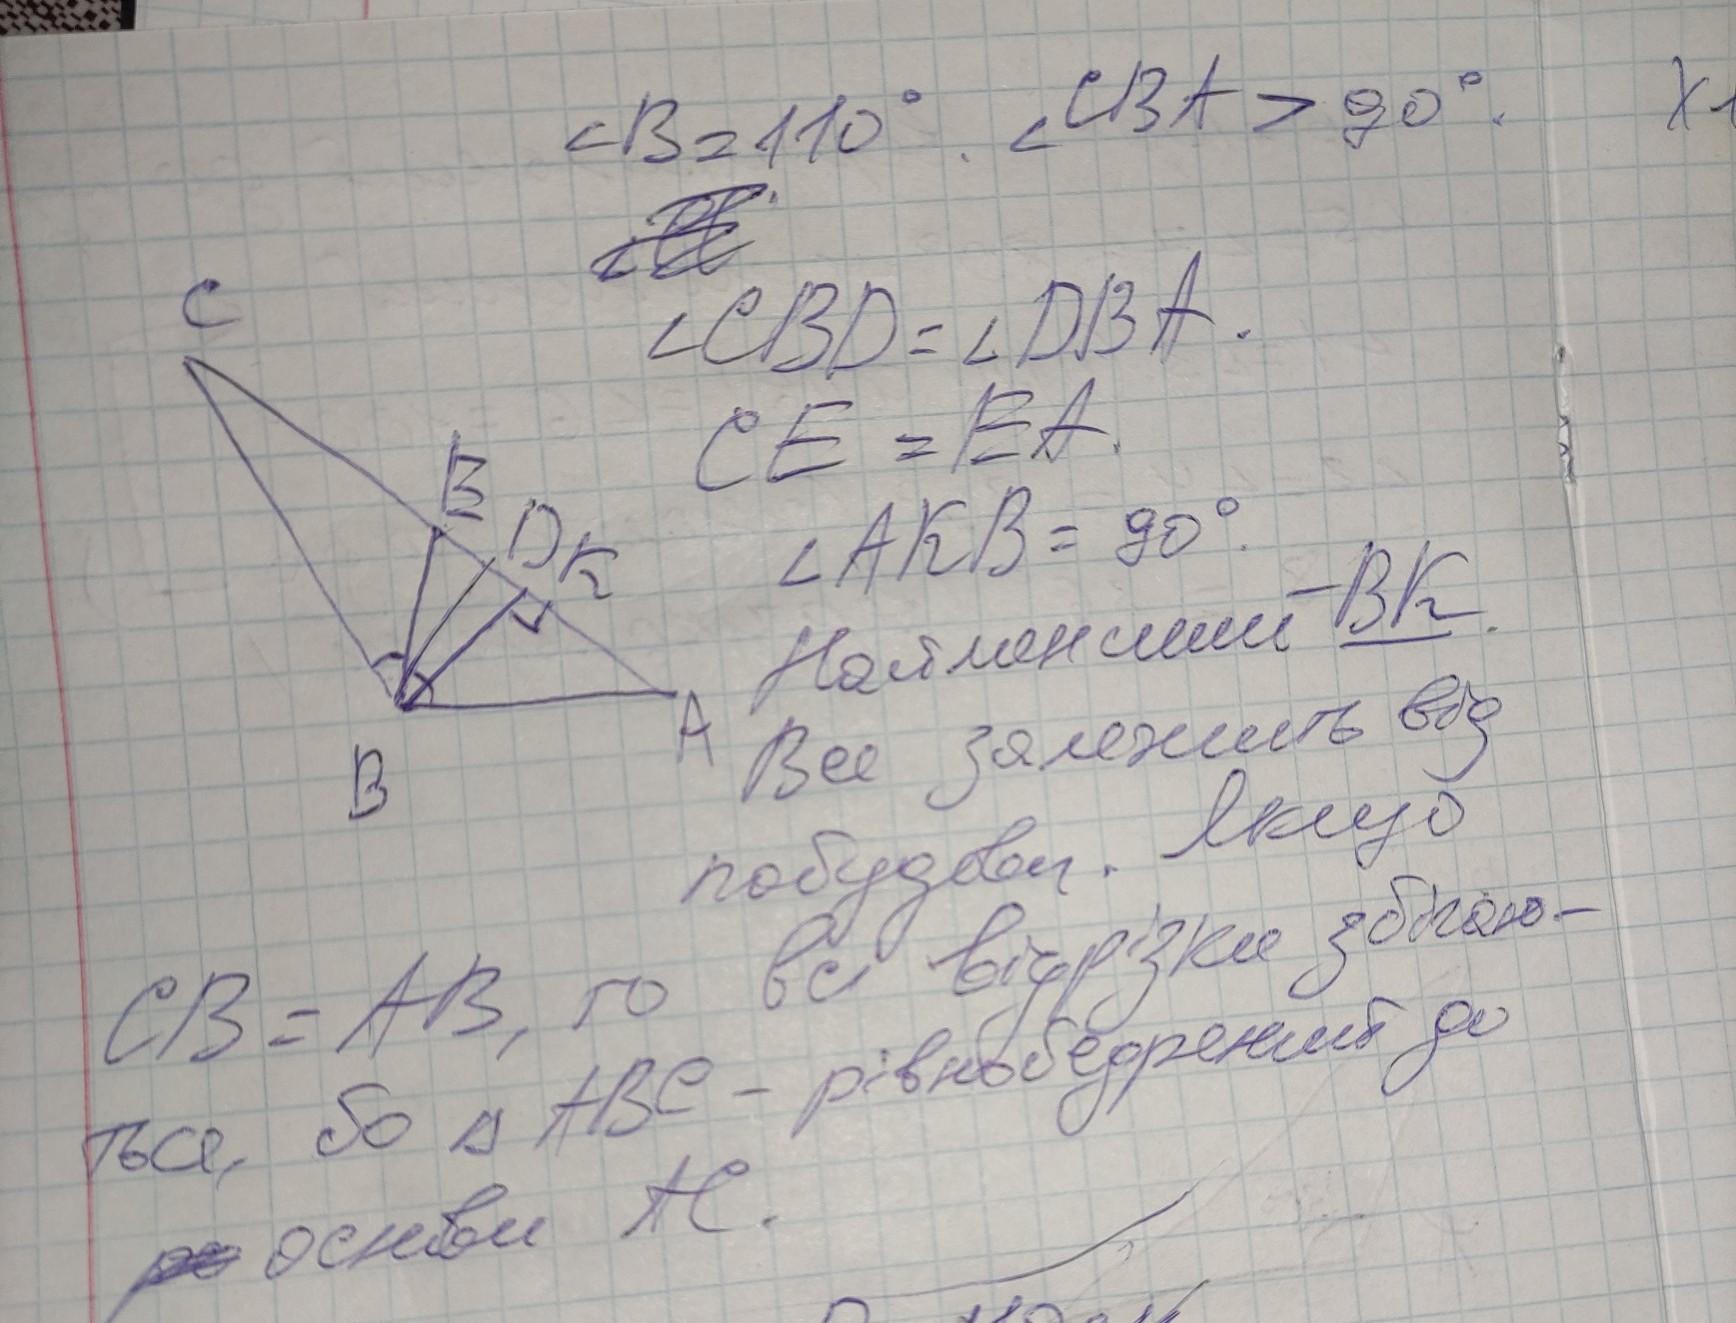 ∠B=110°. ∠CBA > 90°.
∠CBD = ∠DBA.
CE = EA.
∠AKB = 90°.
Найменший - BK.
Все залежить від
побудови. Якщо
CB = AB, то всі відрізки збігаю-
ться, бо △ ABC - рівнобедрений до
основи AC.
C
E
D
K
A
B